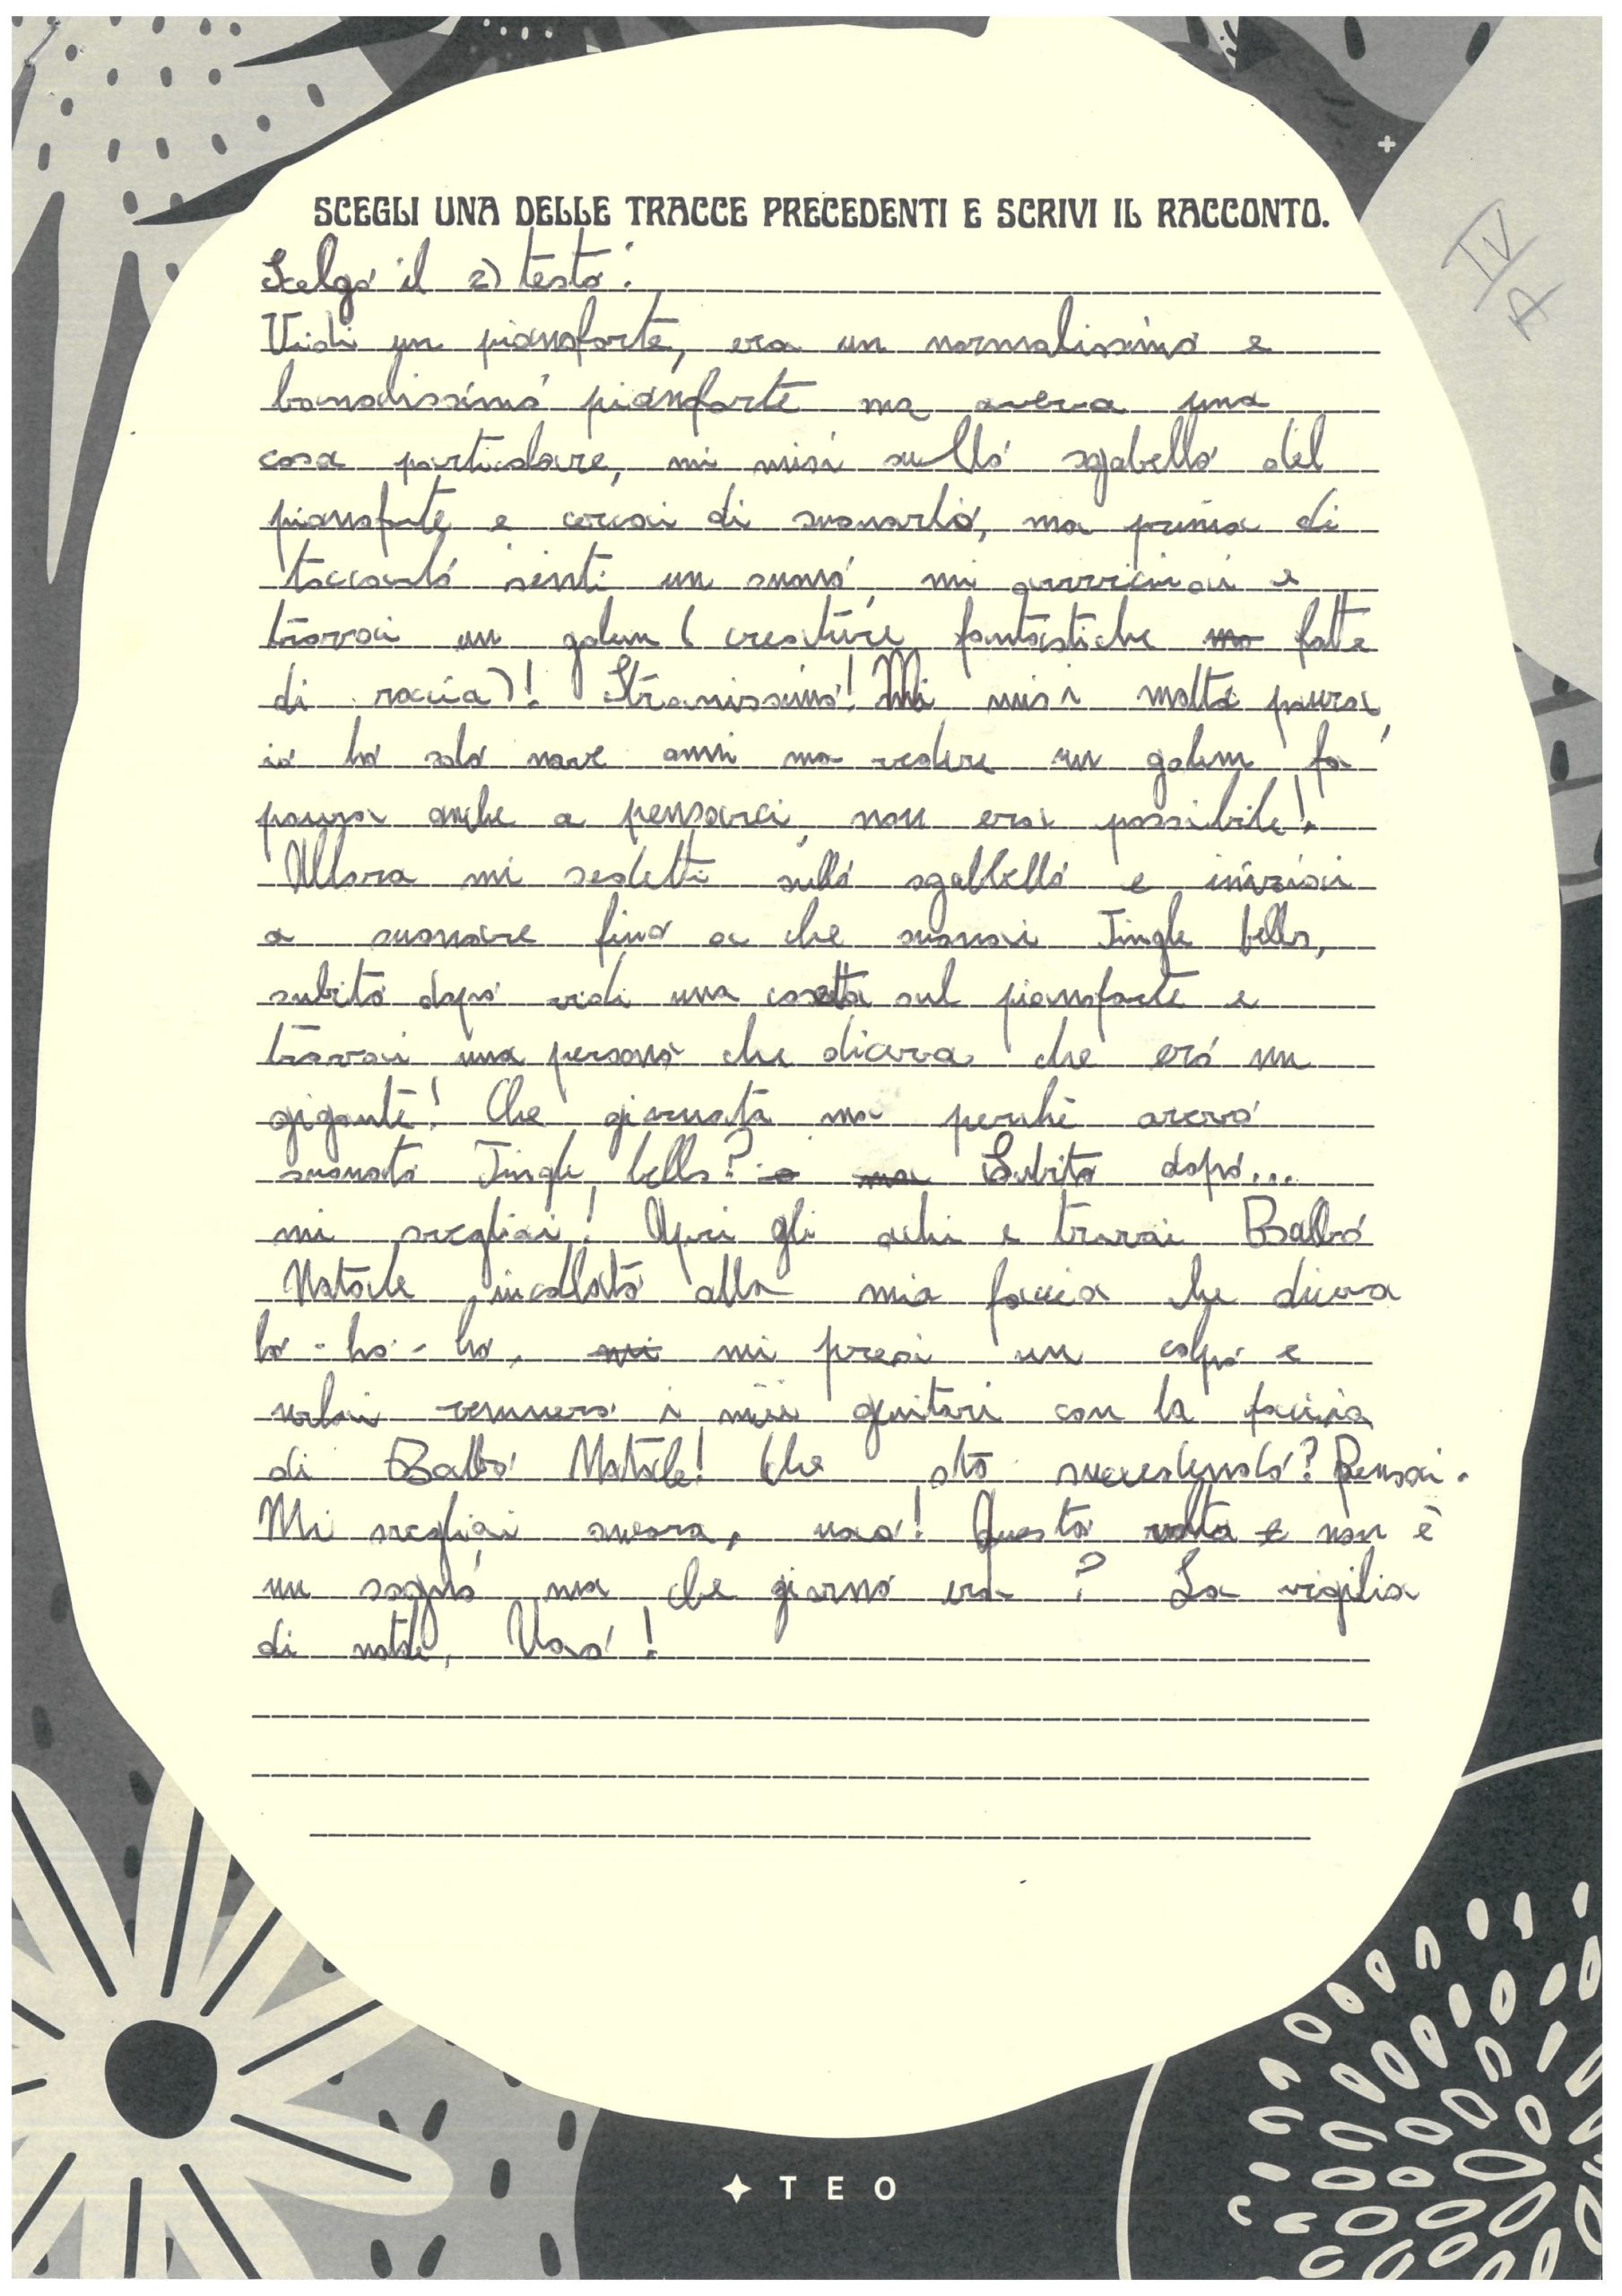 SCEGLI UNA DELLE TRACCE PRECEDENTI E SCRIVI IL RACCONTO.
IV
A
Scelgo il 2) testo:
Vidi un pianoforte, era un normalissimo e
banalissimo pianforte ma aveva una
cosa particolare, mi misi sullo sgabello del
pianofrte e cercai di suonarlo, ma prima di
toccarlo senti un suono mi avvicinai e
trovai un golem ( creature fantastiche ma fatte
di roccia)! Stranissimo! Mi misi molta paura,
io ho solo nove anni ma vedere un golem fa
paura anche a pensarci, non era possibile!
Allora mi sedetti sullo sgabbello e iniziai
a suonare fino a che suonai Jingle bells,
subito dopo vidi una casetta sul pianoforte e
trovai una persona che diceva che ero un
gigante! Che giornata ma perché avevo
suonato Jingle bells? e ma Subito dopo...
mi svegliai! Aprì gli ochi e trovai Babbo
Natale incollato alla mia faccia che diceva
ho - ho - ho, mi mi presi un colpo e
urlai vennero i miei genitori con la faccia
di Babbo Natale! Che sto succedendo? Pensai.
Mi svegliai ancora, uao! Questa volta e non è
un sogno ma che giorno era ? La vigilia
di natale, Uao!
TEO